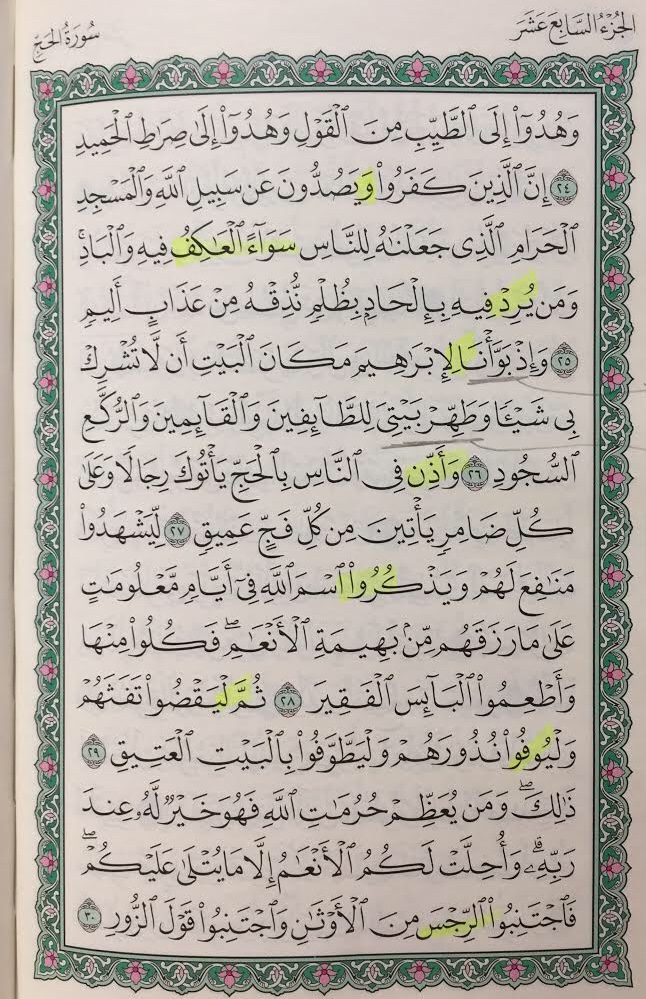 الجُزْءُ السَّابِعَ عَشَرَ
سُورَةُ الحَجِّ
وَهُدُوٓا۟ إِلَى ٱلطَّيِّبِ مِنَ ٱلْقَوْلِ وَهُدُوٓا۟ إِلَىٰ صِرَٰطِ ٱلْحَمِيدِ
٢٤ إِنَّ ٱلَّذِينَ كَفَرُوا۟ وَيَصُدُّونَ عَن سَبِيلِ ٱللَّهِ وَٱلْمَسْجِدِ
ٱلْحَرَامِ ٱلَّذِى جَعَلْنَٰهُ لِلنَّاسِ سَوَآءً ٱلْعَٰكِفُ فِيهِ وَٱلْبَادِ ۚ
وَمَن يُرِدْ فِيهِ بِإِلْحَادٍۭ بِظُلْمٍ نُّذِقْهُ مِنْ عَذَابٍ أَلِيمٍ
٢٥ وَإِذْ بَوَّأْنَا لِإِبْرَٰهِيمَ مَكَانَ ٱلْبَيْتِ أَن لَّا تُشْرِكْ
بِى شَيْـًٔا وَطَهِّرْ بَيْتِىَ لِلطَّآئِفِينَ وَٱلْقَآئِمِينَ وَٱلرُّكَّعِ
ٱلسُّجُودِ ٢٦ وَأَذِّن فِى ٱلنَّاسِ بِٱلْحَجِّ يَأْتُوكَ رِجَالًا وَعَلَىٰ
كُلِّ ضَامِرٍ يَأْتِينَ مِن كُلِّ فَجٍّ عَمِيقٍ ٢٧ لِّيَشْهَدُوا۟
مَنَٰفِعَ لَهُمْ وَيَذْكُرُوا۟ ٱسْمَ ٱللَّهِ فِىٓ أَيَّامٍ مَّعْلُومَٰتٍ
عَلَىٰ مَا رَزَقَهُم مِّنۢ بَهِيمَةِ ٱلْأَنْعَٰمِ ۖ فَكُلُوا۟ مِنْهَا
وَأَطْعِمُوا۟ ٱلْبَآئِسَ ٱلْفَقِيرَ ٢٨ ثُمَّ لْيَقْضُوا۟ تَفَثَهُمْ
وَلْيُوفُوا۟ نُذُورَهُمْ وَلْيَطَّوَّفُوا۟ بِٱلْبَيْتِ ٱلْعَتِيقِ ٢٩
ذَٰلِكَ ۖ وَمَن يُعَظِّمْ حُرُمَٰتِ ٱللَّهِ فَهُوَ خَيْرٌ لَّهُۥ عِندَ
رَبِّهِۦ ۗ وَأُحِلَّتْ لَكُمُ ٱلْأَنْعَٰمُ إِلَّا مَا يُتْلَىٰ عَلَيْكُمْ ۖ
فَٱجْتَنِبُوا۟ ٱلرِّجْسَ مِنَ ٱلْأَوْثَٰنِ وَٱجْتَنِبُوا۟ قَوْلَ ٱلزُّورِ ٣٠